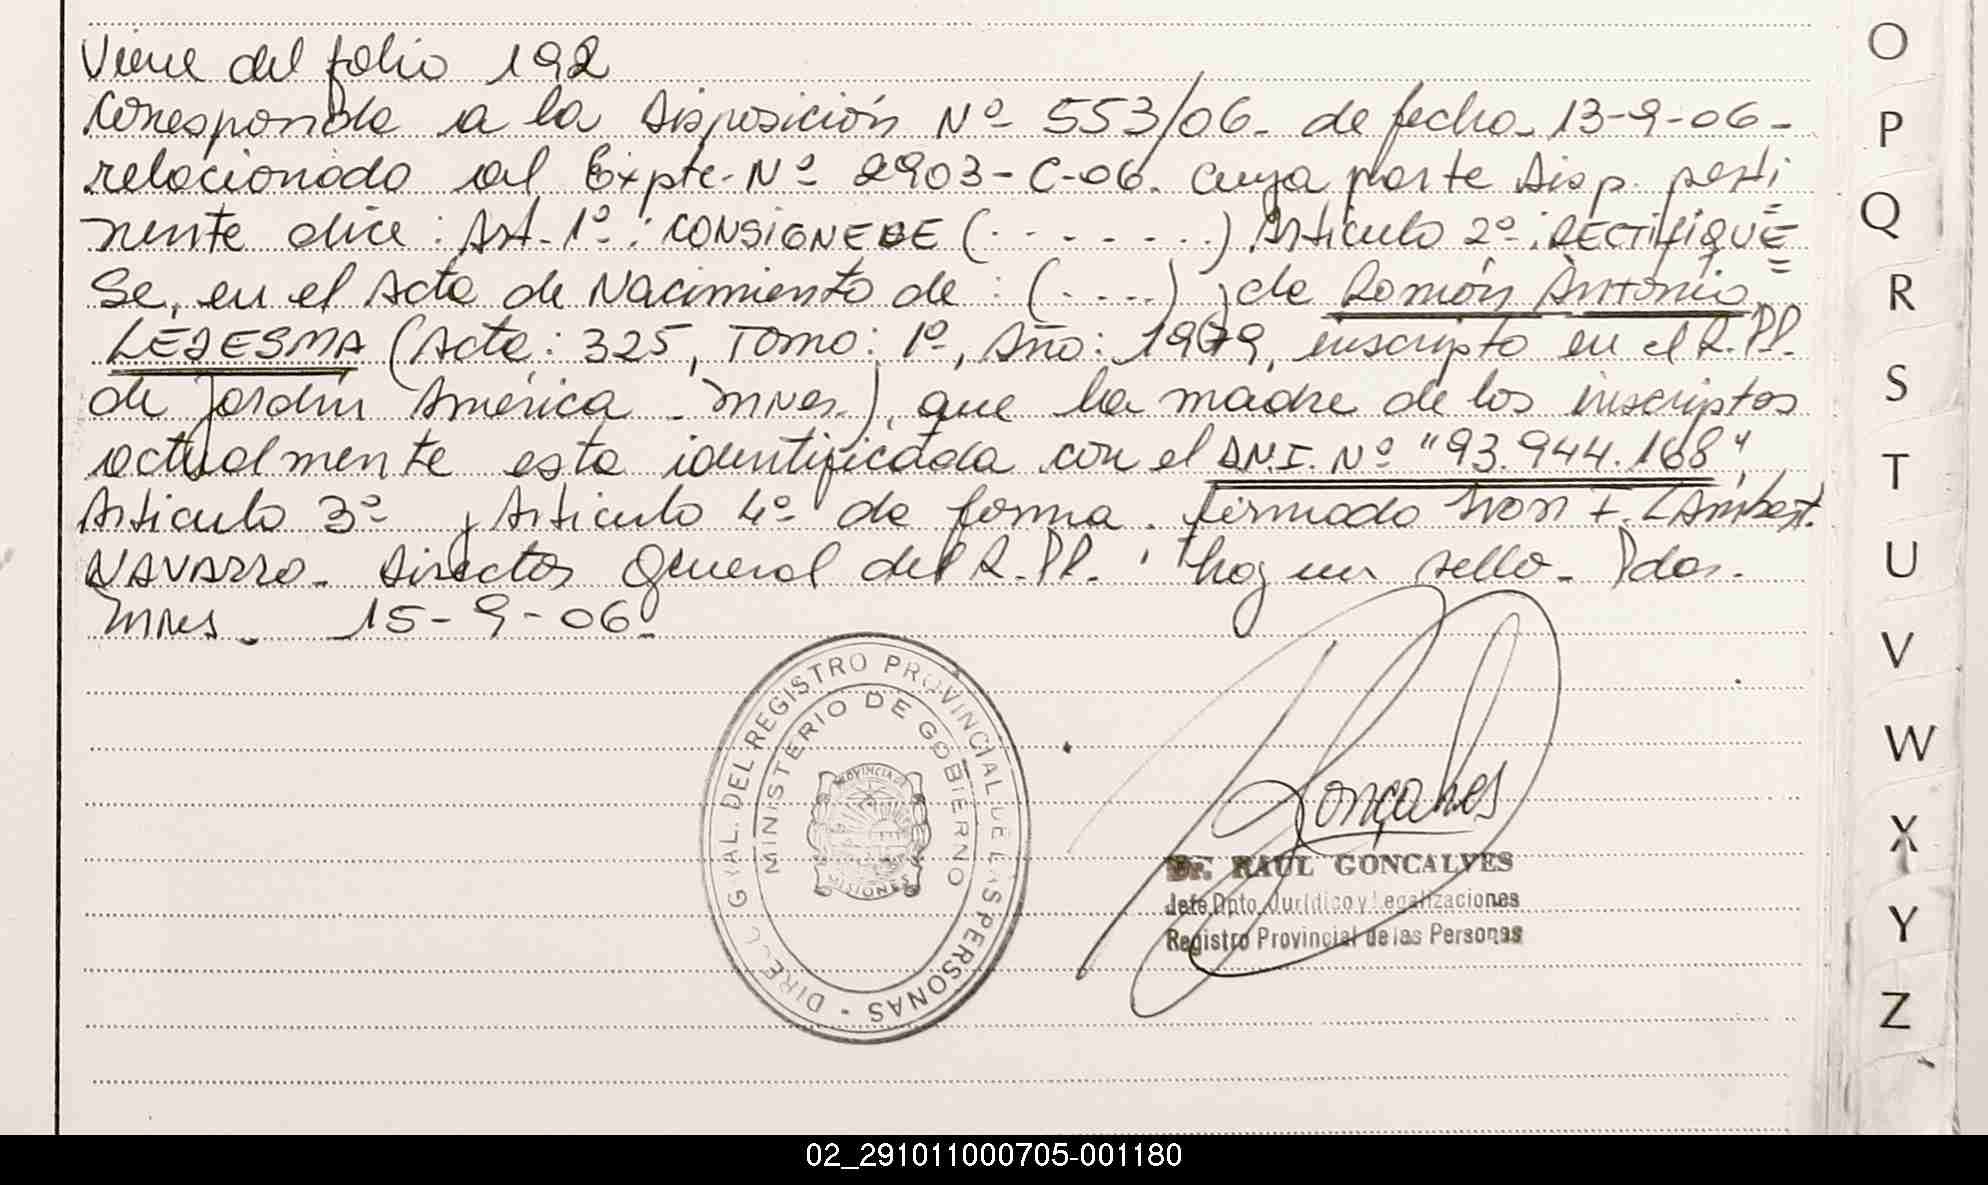 Viene del folio 192
Corresponde a la Disposición Nº 553/06- de fecha- 13-9-06-
relacionado al Expte-Nº 2903-C-06. cuya parte Disp. perti
nente dice: Art. 1º: CONSIGNESE (. . . . . . .) Artículo 2º: RECTIFIQUE
Se, en el Acta de Nacimiento de: (. . . .) y de Ramón Antonio
LEDESMA (Acta: 325, Tomo: 1º, Año: 1979, inscripto en el R.PP.
de Jardín América - Mnes.), que la madre de los inscriptos
actualmente esta identificada con el D.N.I. Nº "93.944.168"
Artículo 3º y Artículo 4º de forma. firmado F.
NAVARRO. Director General del R.PP. hay un sello- Pdas.
Mnes. 15-9-06.
DIREC. GRAL. DEL REGISTRO PROVINCIAL DE LAS PERSONAS -
MINISTERIO DE GOBIERNO
PROVINCIA DE
MISIONES
Gonçalves
Dr. RAUL GONCALVES
Jefe Dpto. Jurídico y Legalizaciones
Registro Provincial de las Personas
O
P
Q
R
S
T
U
V
W
X
Y
Z
02_291011000705-001180